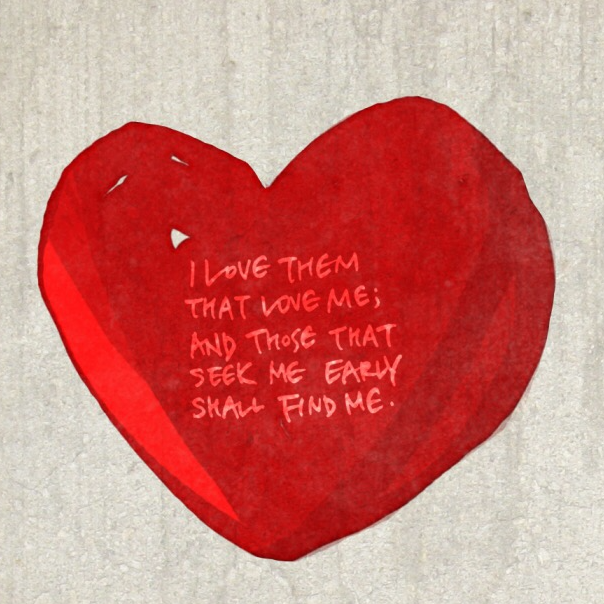 I LOVE THEM
THAT LOVE ME;
AND THOSE THAT
SEEK ME EARLY
SHALL FIND ME.